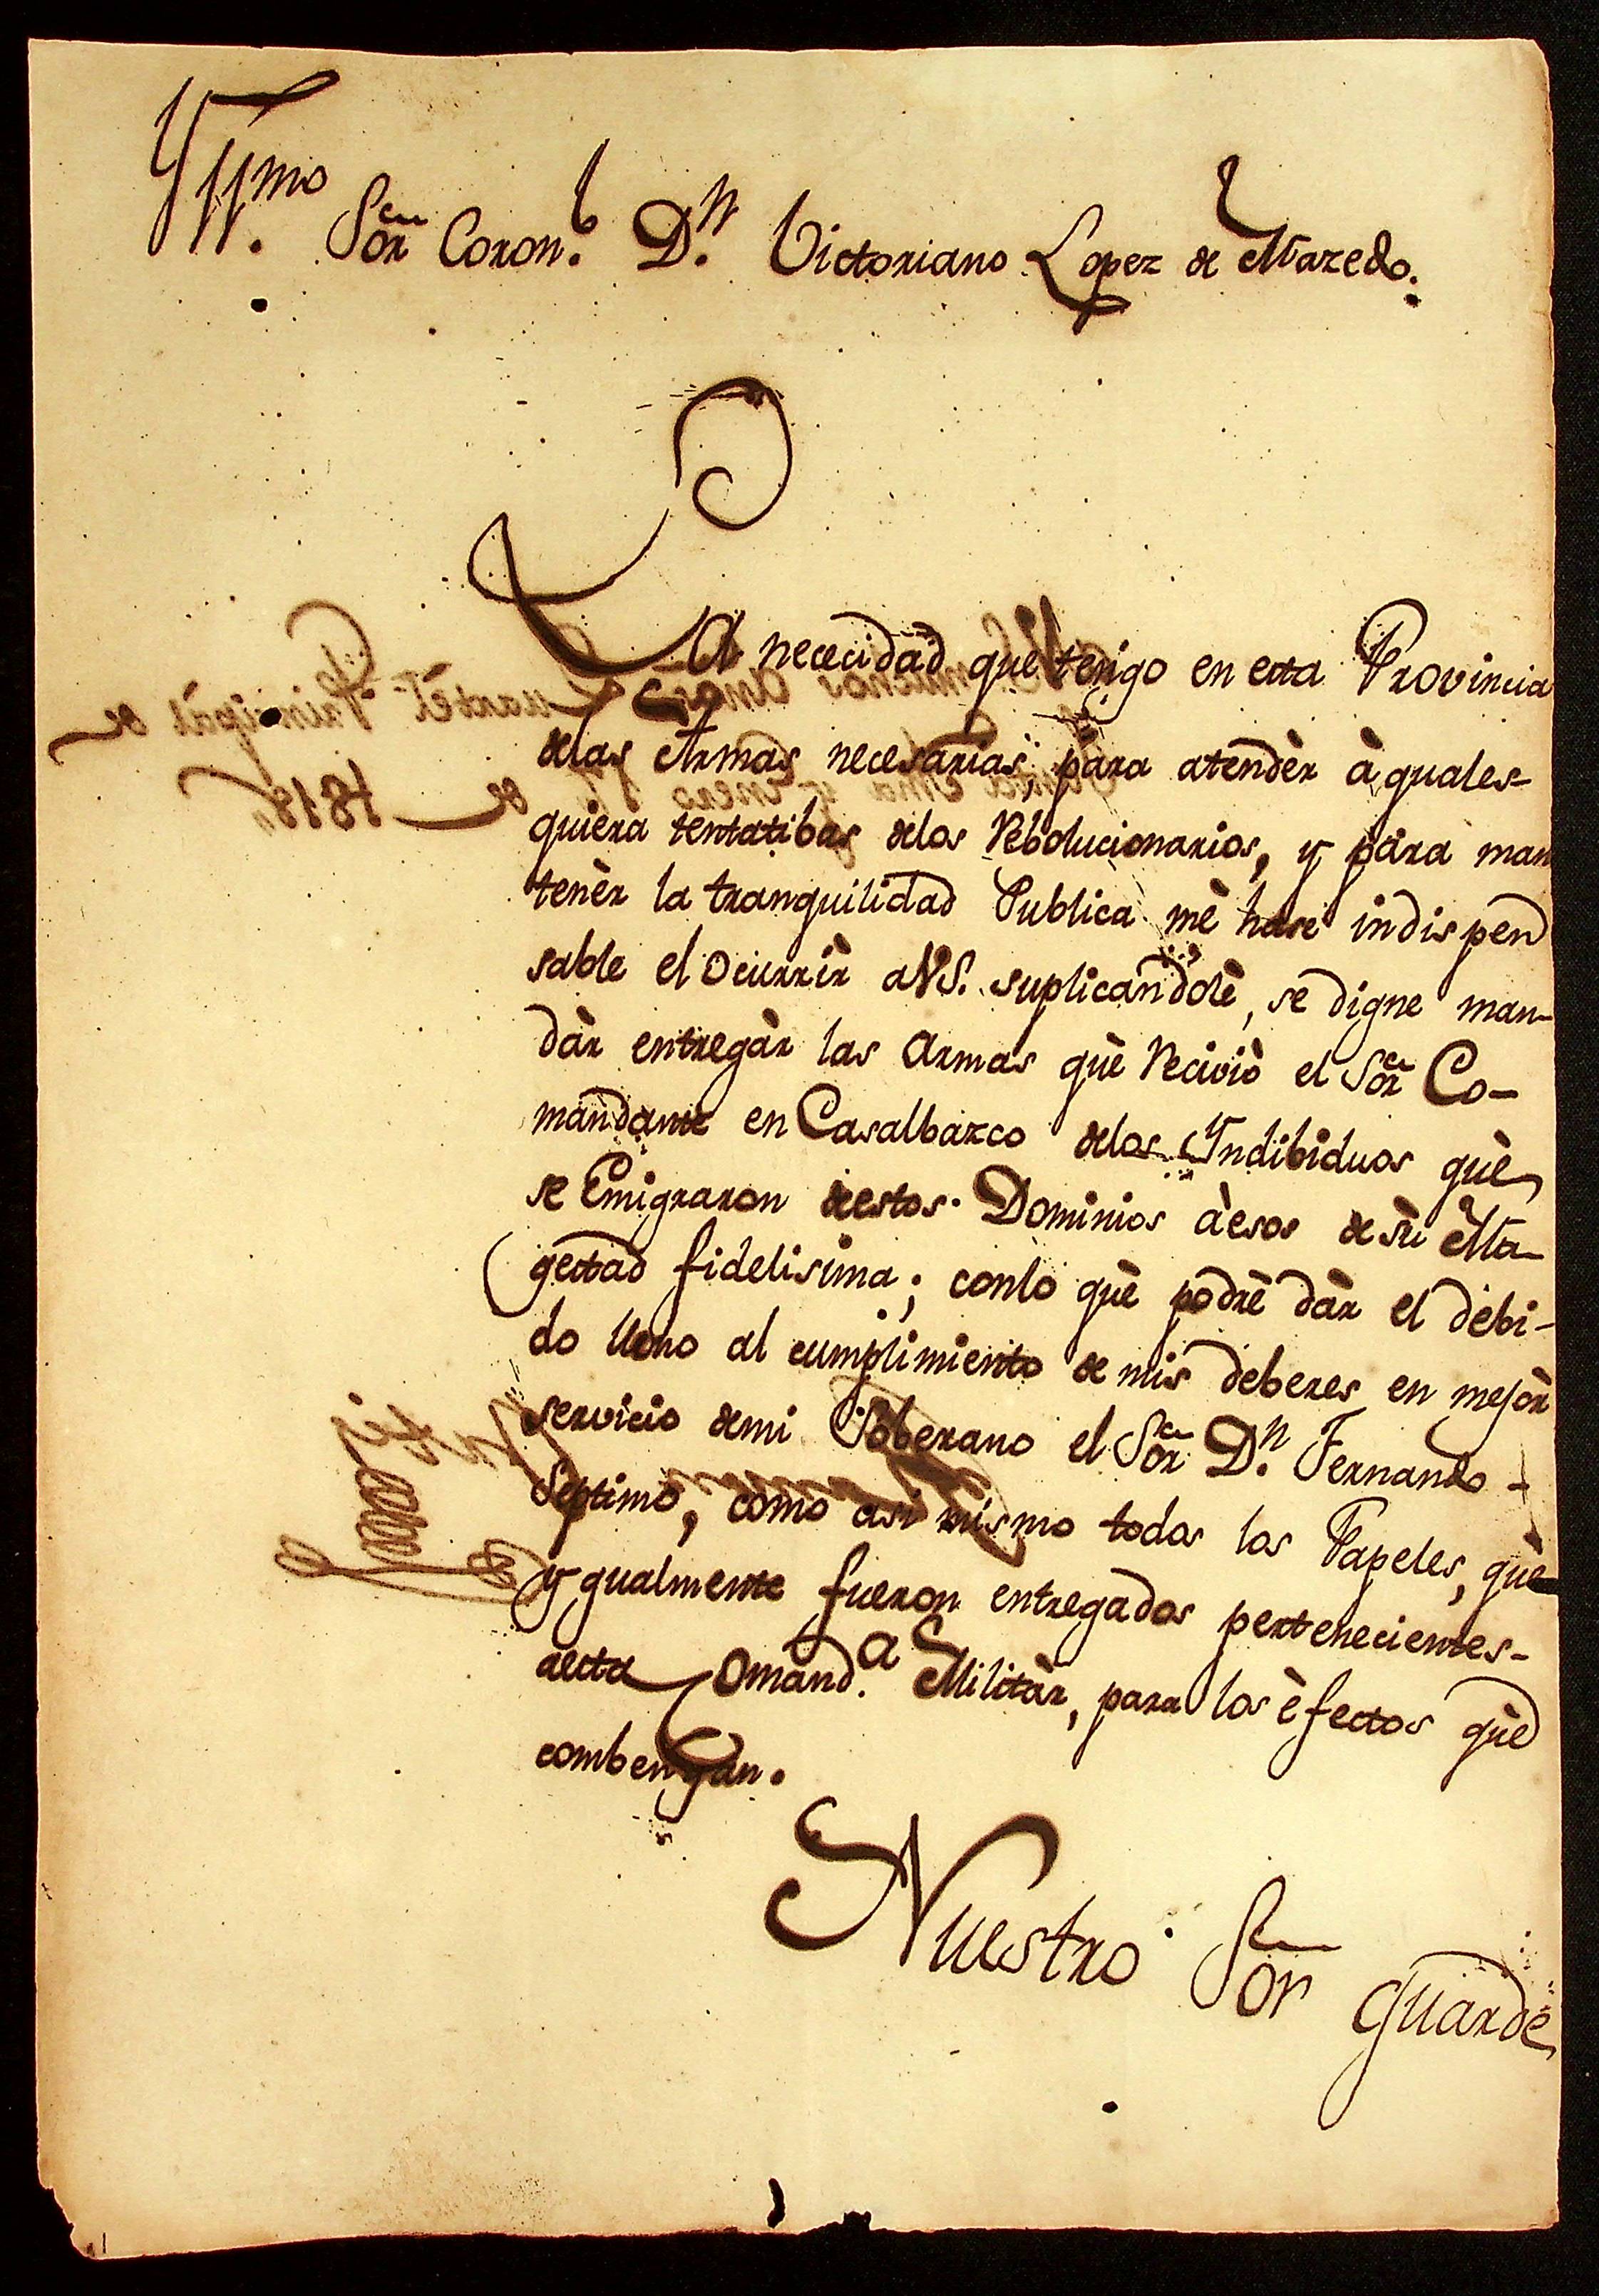 Yllmo Sor Coron.l D.n Victoriano Lopez de Mazedo.
LA nececidad que tengo en esta Provincia
delas Armas necesarias, para atendèr à quales-
quiera tentatibas delos Rebolucionarios, y para man
tenèr la tranquilidad Publica mè hase indispen
sable el Ocurrìr aVS. suplicandolè, se digne man-
dàr entregàr las Armas què Reciviò el Sor Co-
mandante en Casalbazco delos Yndibiduos què
se Emigraron deestos Dominios àesos de sù Ma-
gestad fidelisima; conlo què podrè dàr el debi-
do lleno al cumplimiento de mis deberes en mejòr
servicio demi Soberano el Sor D.n Fernando
Septimo, como asi mismo todos los Papeles, què
ygualmente fueron entregados pertenecientes-
aesta Comand.a Militàr, para los èfectos què
combengan.
Nuestro Sor Guarde